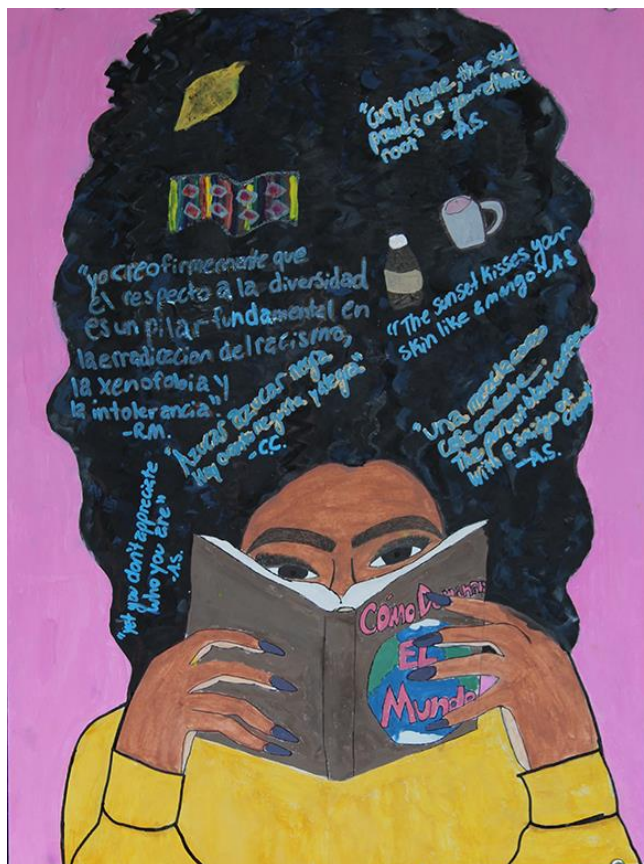 "Curly mane, the sole
power of your
root"
-A.S.
"yo creo firmemente que
el respecto a la diversidad
es un pilar fundamental en
la erradicacion del racismo,
la xenofobia y
la intolerancia".
-R.M.
"The sunset kisses your
skin like a mango" -A.S
"Azucar azucar negra
y alegria."
-C.C.
"Una mezcla como
café
The perfect black coffee
with a of
-A.S.
"Yet you don't appreciate
who you are"
-A.S.
CÓMO
EL
Mundo